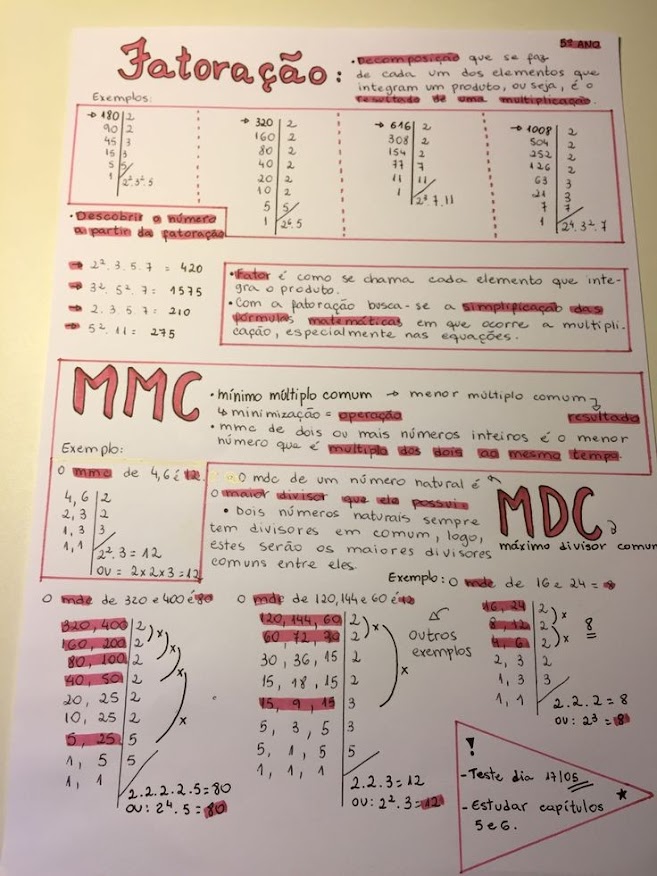 5º ANO
Fatoração:
• Decomposição que se faz
de cada um dos elementos que
integram um produto, ou seja, é o
resultado de uma multiplicação.
Exemplos:
→ 180 | 2
90 | 2
45 | 3
15 | 3
5 | 5
1 | 2².3².5
→ 320 | 2
160 | 2
80 | 2
40 | 2
20 | 2
10 | 2
5 | 5
1 | 2⁶.5
→ 616 | 2
308 | 2
154 | 2
77 | 7
11 | 11
1 | 2³.7.11
→ 1008 | 2
504 | 2
252 | 2
126 | 2
63 | 3
21 | 3
7 | 7
1 | 2⁴.3².7
• Descobrir o número
a partir da fatoração
→ 2².3.5.7 = 420
→ 3².5².7 = 1575
→ 2.3.5.7 = 210
→ 5².11 = 275
• Fator é como se chama cada elemento que inte-
gra o produto.
• Com a fatoração busca-se a simplificação das
fórmulas matemáticas em que ocorre a multipli-
cação, especialmente nas equações.
MMC
• mínimo múltiplo comum → menor múltiplo comum
↳ minimização = operação resultado
• mmc de dois ou mais números inteiros é o menor
número que é multiplo dos dois ao mesmo tempo.
Exemplo:
O mmc de 4,6 é 12.
4, 6 | 2
2, 3 | 2
1, 3 | 3
1, 1
2².3 = 12
ou = 2x2x3 = 12
• O mdc de um número natural é
o maior divisor que ele possui.
• Dois números naturais sempre
tem divisores em comum, logo,
estes serão os maiores divisores
comuns entre eles.
MDC
máximo divisor comum
Exemplo: O mdc de 16 e 24 = 8
16, 24 | 2
8, 12 | 2
4, 6 | 2
2, 3 | 2
1, 3 | 3
1, 1
x
x
8
2.2.2 = 8
ou: 2³ = 8
O mdc de 320 e 400 é 80
320, 400 | 2
160, 200 | 2
80, 100 | 2
40, 50 | 2
20, 25 | 2
10, 25 | 2
5, 25 | 5
1, 5 | 5
1, 1
x
x
x
x
2.2.2.2.5 = 80
ou: 2⁴.5 = 80
O mdc de 120,144 e 60 é 12
120, 144, 60 | 2
60, 72, 30 | 2
30, 36, 15 | 2
15, 18, 15 | 2
15, 9, 15 | 3
5, 3, 5 | 3
5, 1, 5 | 5
1, 1, 1
x
x
2.2.3 = 12
ou: 2².3 = 12
Outros
exemplos
!
- Teste dia 17/05
- Estudar capítulos
5 e 6.